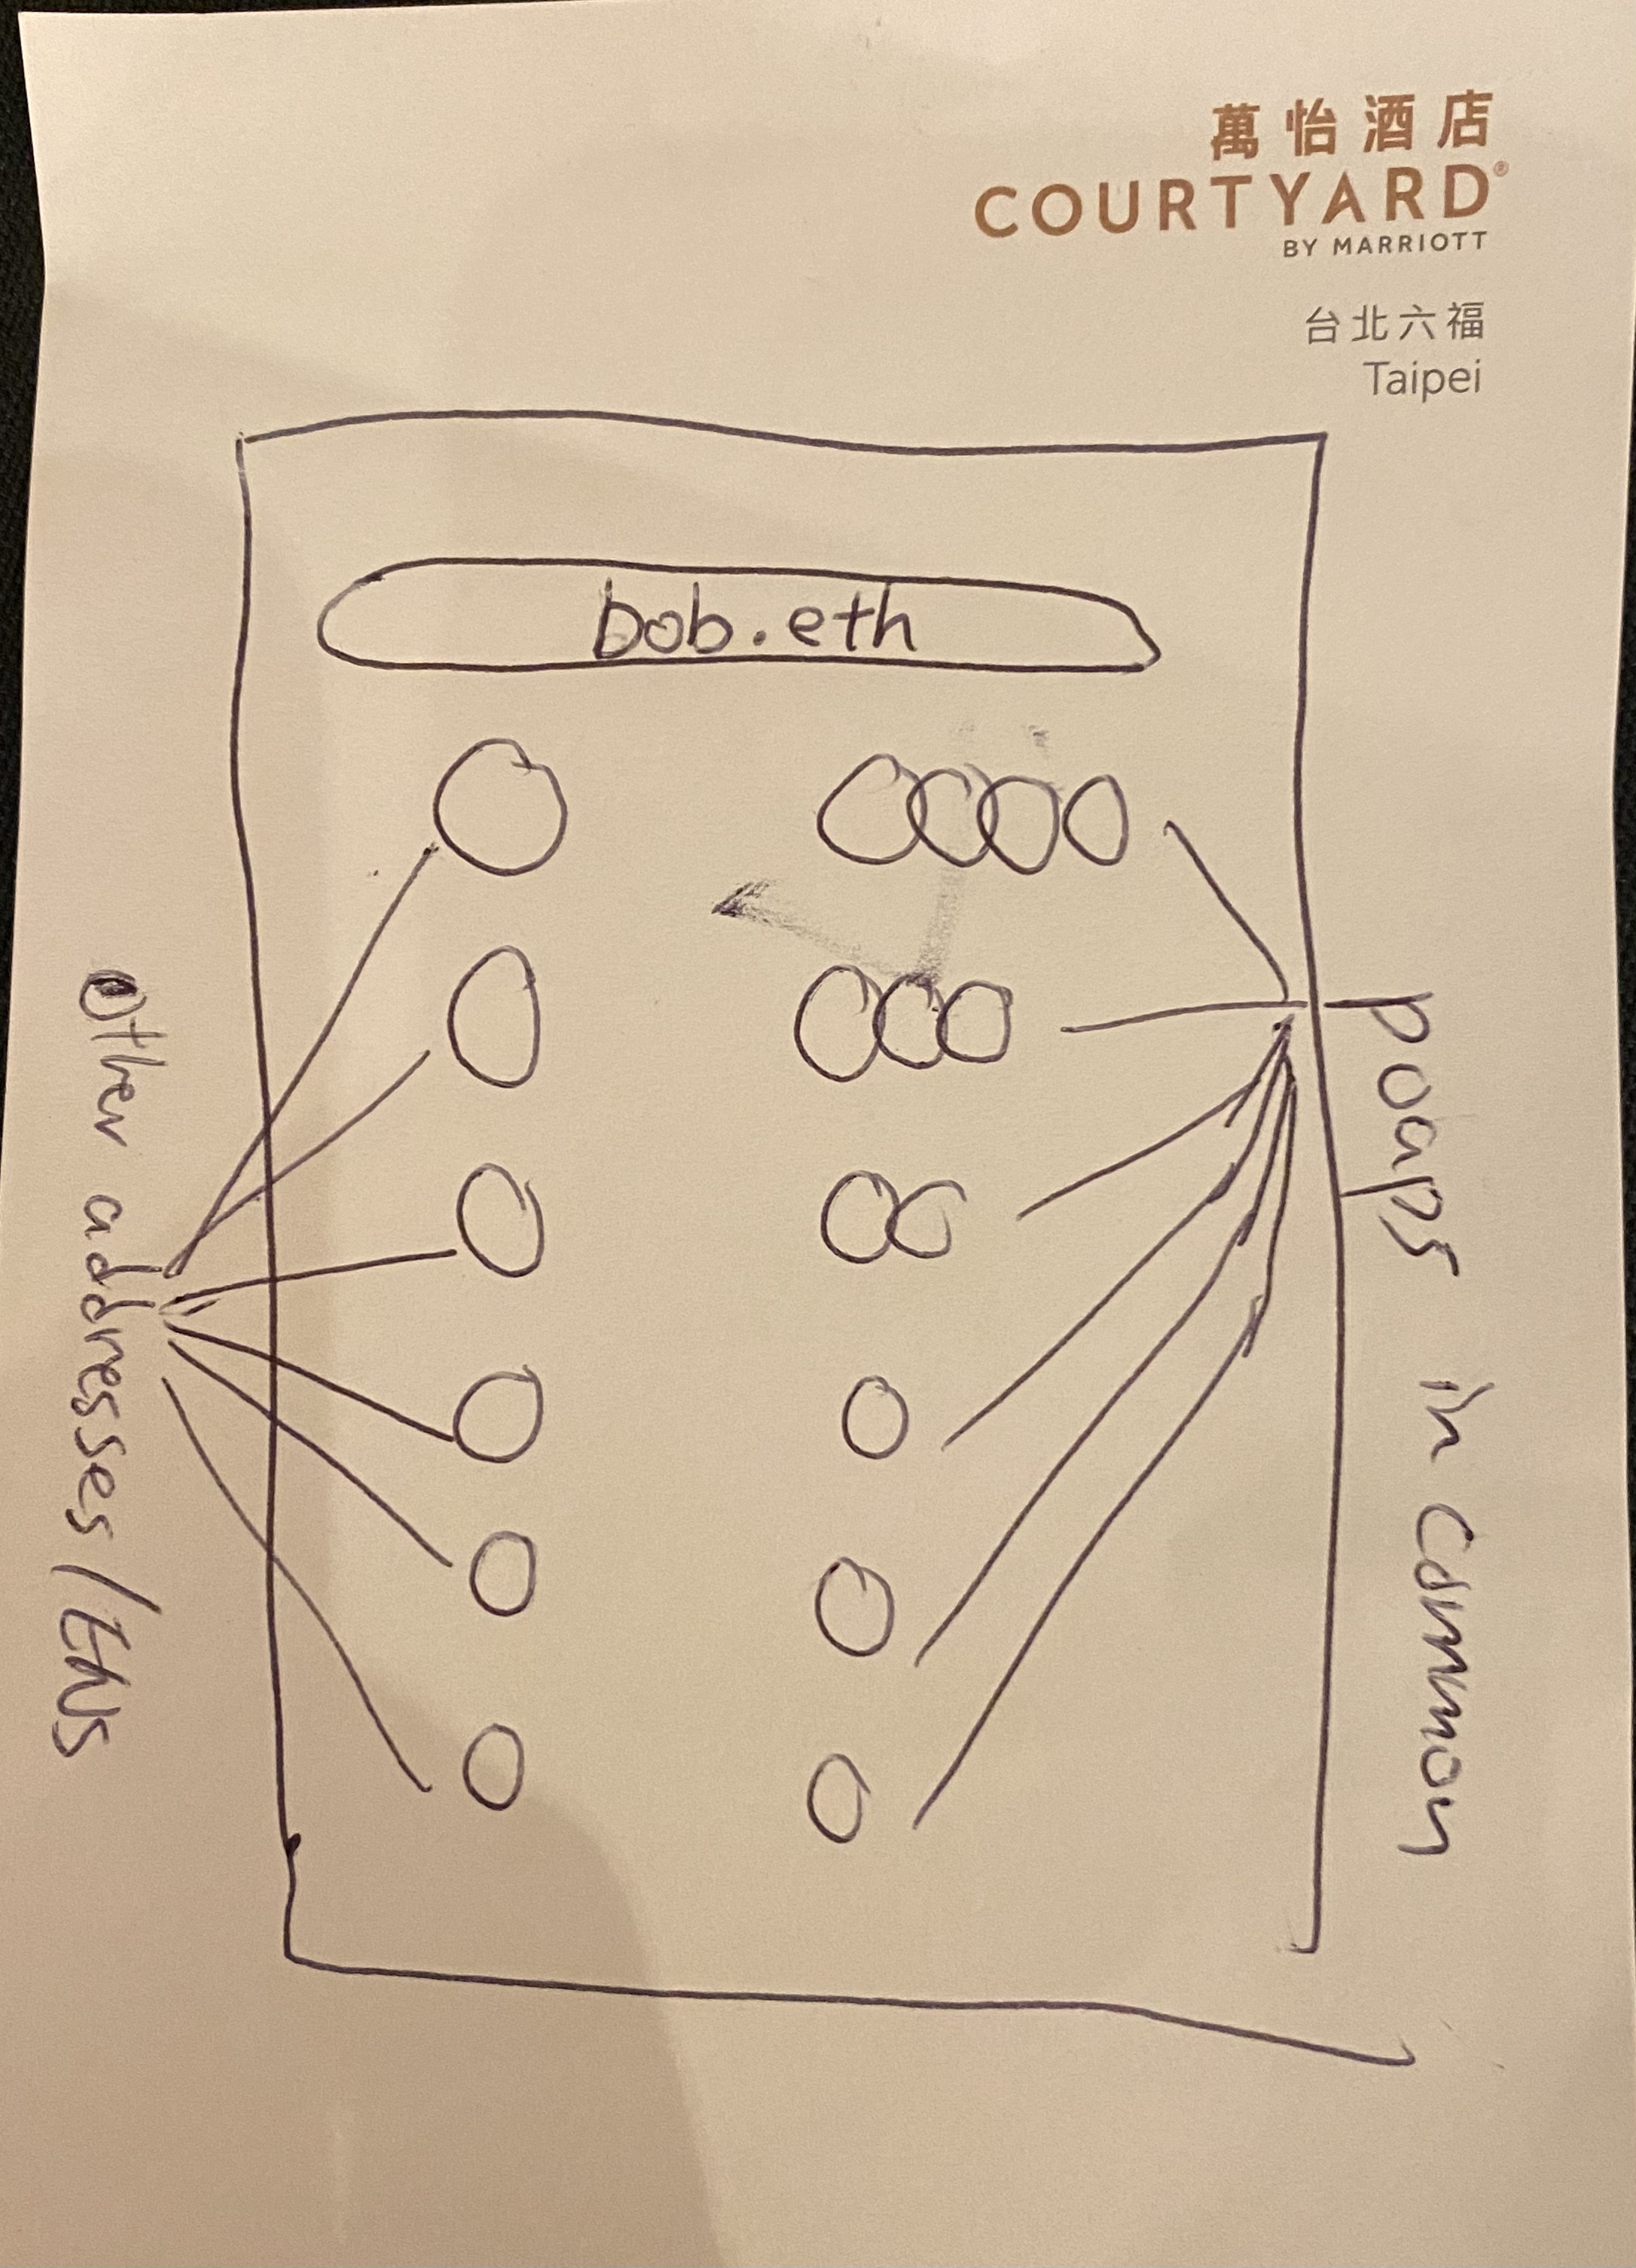 萬怡酒店
COURTYARD®
BY MARRIOTT
台北六福
Taipei
bob.eth
Other addresses/ENS
poaps in common